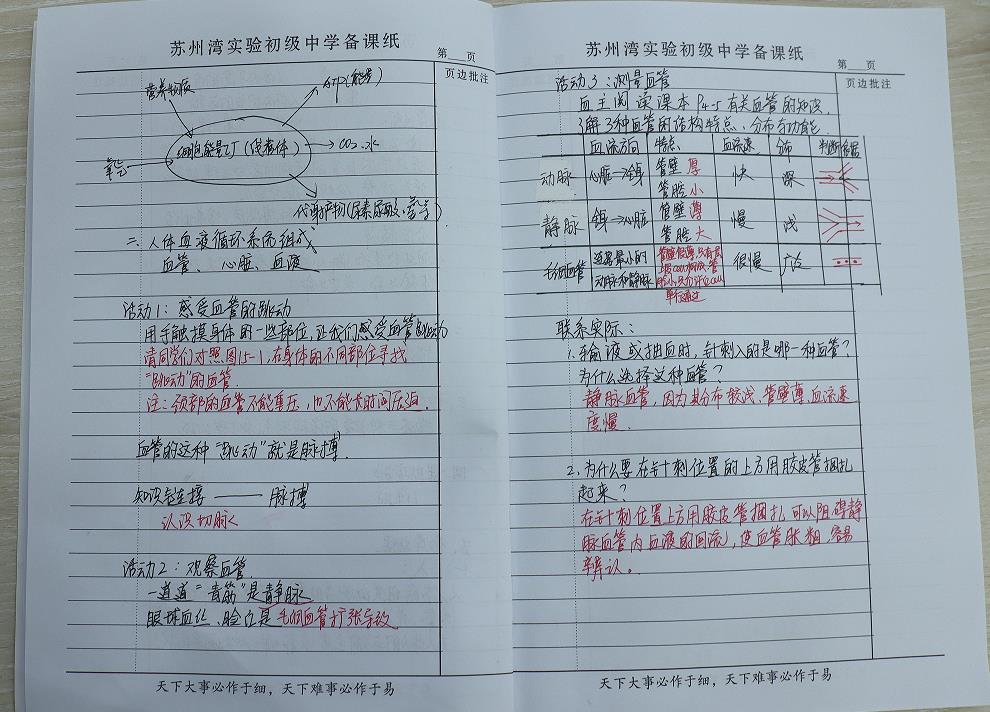 苏州湾实验初级中学备课纸
第 页
页边批注
营养物质
ATP(能量)
细胞能量工厂(线粒体)
CO₂.水
氧气
代谢产物(尿素.尿酸、等)
二、人体血液循环系统组成
血管、心脏、血液
活动1:感受血管的跳动
用手触摸身体的一些部位,让我们感受血管跳动
请同学们对照图15-1,在身体的不同部位寻找
“跳动”的血管.
注:颈部的血管不能重压,也不能长时间压迫.
血管的这种“跳动”就是脉搏.
知识链接——脉搏
认识切脉
活动2:观察血管
一道道“青筋”是静脉
眼球血丝、脸红是毛细血管扩张导致
天下大事必作于细,天下难事必作于易
苏州湾实验初级中学备课纸
第 页
页边批注
活动3:测量血管
自主阅读课本P4-5有关血管的知识,
了解3种血管的结构特点、分布与功能.
血流方向 特点 血流速 分布 判断依据
动脉 心脏→全身 管壁 厚 管腔 小 快 深
静脉 全身→心脏 管壁 薄 管腔 大 慢 浅
毛细血管 连通最小的动脉和静脉 很慢 广泛
单行通过
联系实际:
1.输液或抽血时,针刺入的是哪一种血管?
为什么选择这种血管?
静脉血管,因为其分布较浅、管壁薄、血流速
度慢.
2.为什么要在针刺位置的上方用胶皮管捆扎
起来?
在针刺位置上方用胶皮管捆扎,可以阻碍静
脉血管内血液的回流,使血管胀粗,容易
辨认。
天下大事必作于细,天下难事必作于易